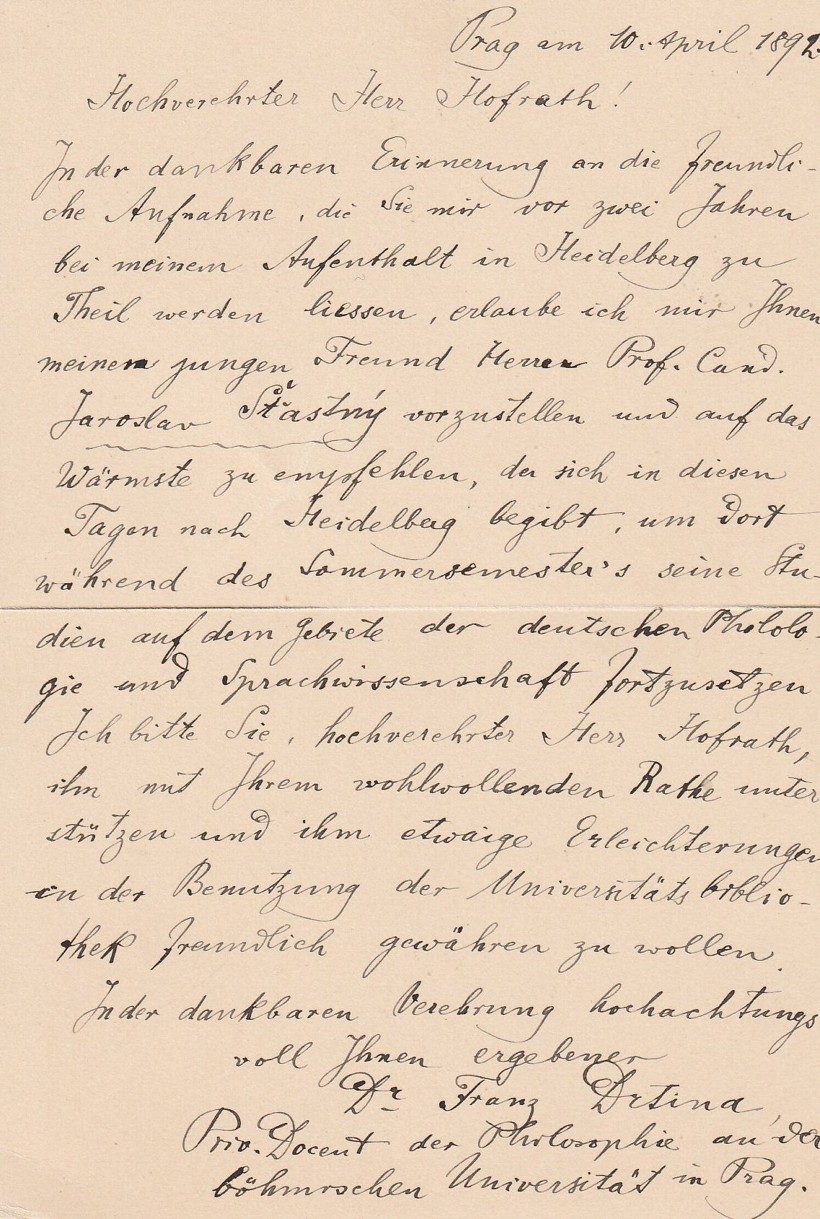 Prag am 10. April 1892.
Hochverehrter Herr Hofrath!
In der dankbaren Erinnerung an die freundli-
che Aufnahme, die Sie mir vor zwei Jahren
bei meinem Aufenthalt in Heidelberg zu
Theil werden liessen, erlaube ich mir Ihnen
meinen jungen Freund Herren Prof. Cand.
Jaroslav Šťastný vorzustellen und auf das
Wärmste zu empfehlen, der sich in diesen
Tagen nach Heidelberg begibt, um dort
während des Sommersemester's seine Stu-
dien auf dem Gebiete der deutschen Philolo-
gie und Sprachwissenschaft fortzusetzen
Ich bitte Sie, hochverehrter Herr Hofrath,
ihn mit Ihrem wohlwollenden Rathe unter
stützen und ihm etwaige Erleichterungen
in der Benutzung der Universitätsbiblio-
thek freundlich gewähren zu wollen.
In der dankbaren Verehrung hochachtungs
voll Ihnen ergebener
Dr Franz Drtina,
Priv. Docent der Philosophie an der
böhmischen Universität in Prag.